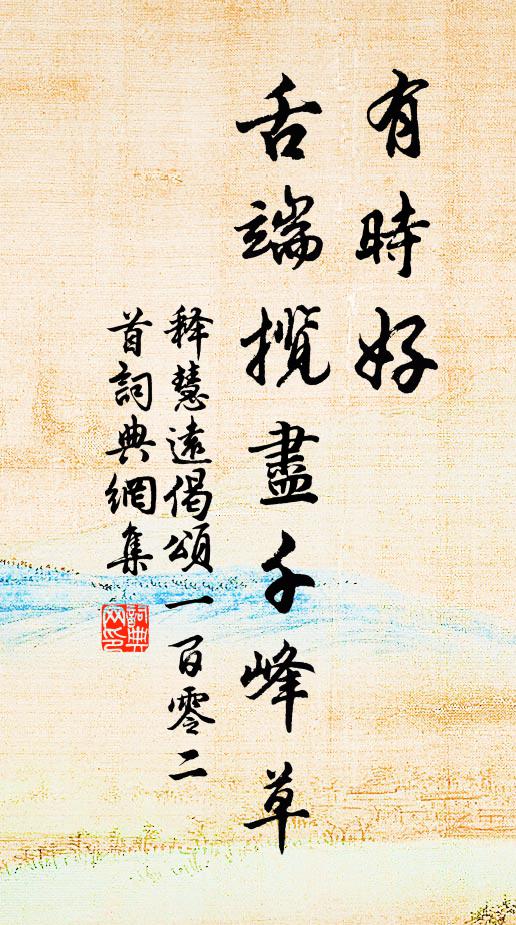 有時好
舌端攬盡千峰草
释慧遠偈頌一百零二
首詞典網集
詞典
网印